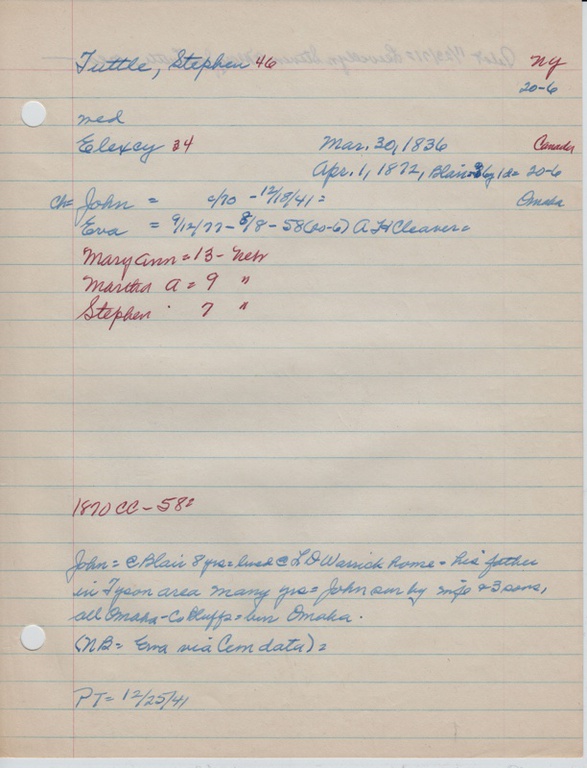 Tuttle, Stephen 46 NY
20-6
med
Elexcy 34 Mar. 30, 1836 Canada
Apr. 1, 1872, Blair = 36y 1d = 20-6
ch = John = c/70 - 12/19/41 = Omaha
Eva = 9/12/77 - 8/8 - 58 (20-6) A H Cleaver =
Mary Ann = 13 - Nebr
Martha A = 9 "
Stephen 7 "
1870 CC - 58 =
John = @ Blair 8 yrs = lived @ L D Warrick home - his father
in Tyson area many yrs = John sur by wife & 3 sons,
all Omaha - Co Bluffs = bur Omaha.
(NB = Eva via Cem data) =
PT = 12/25/41